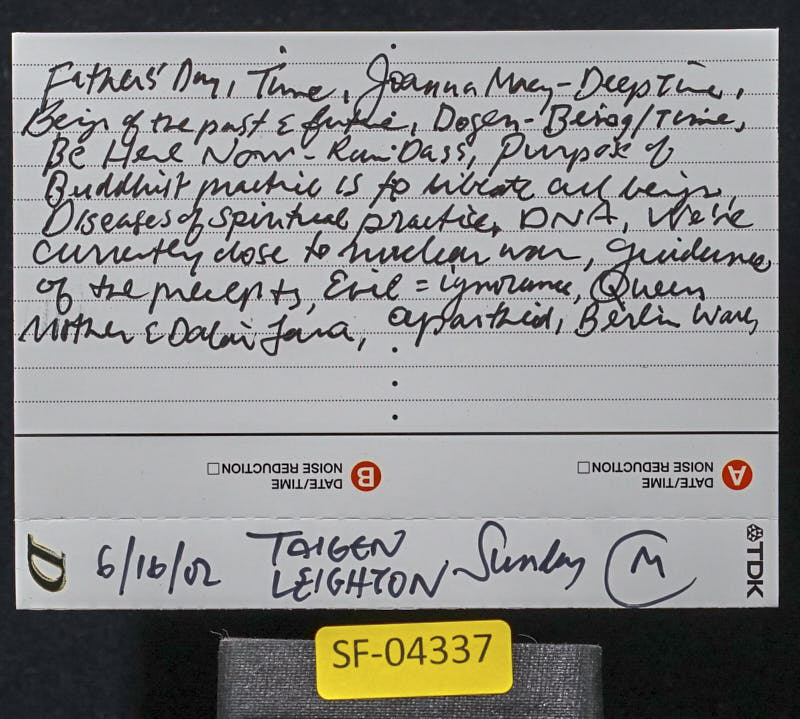 Fathers' Day, Time, Joanna Macy - Deep Time,
Beings of the past & future, Dogen - Being/Time,
Be Here Now - Ram Dass, Purpose of
Buddhist practice is to liberate all beings,
Diseases of spiritual practice, DNA, We're
currently close to nuclear war, guidance
of the precepts, Evil = ignorance, Queen
Mother & Dalai Lama, apartheid, Berlin Wall,
B DATE/TIME
NOISE REDUCTION
A DATE/TIME
NOISE REDUCTION
D 6/16/02 TAIGEN LEIGHTON Sunday M TDK
SF-04337